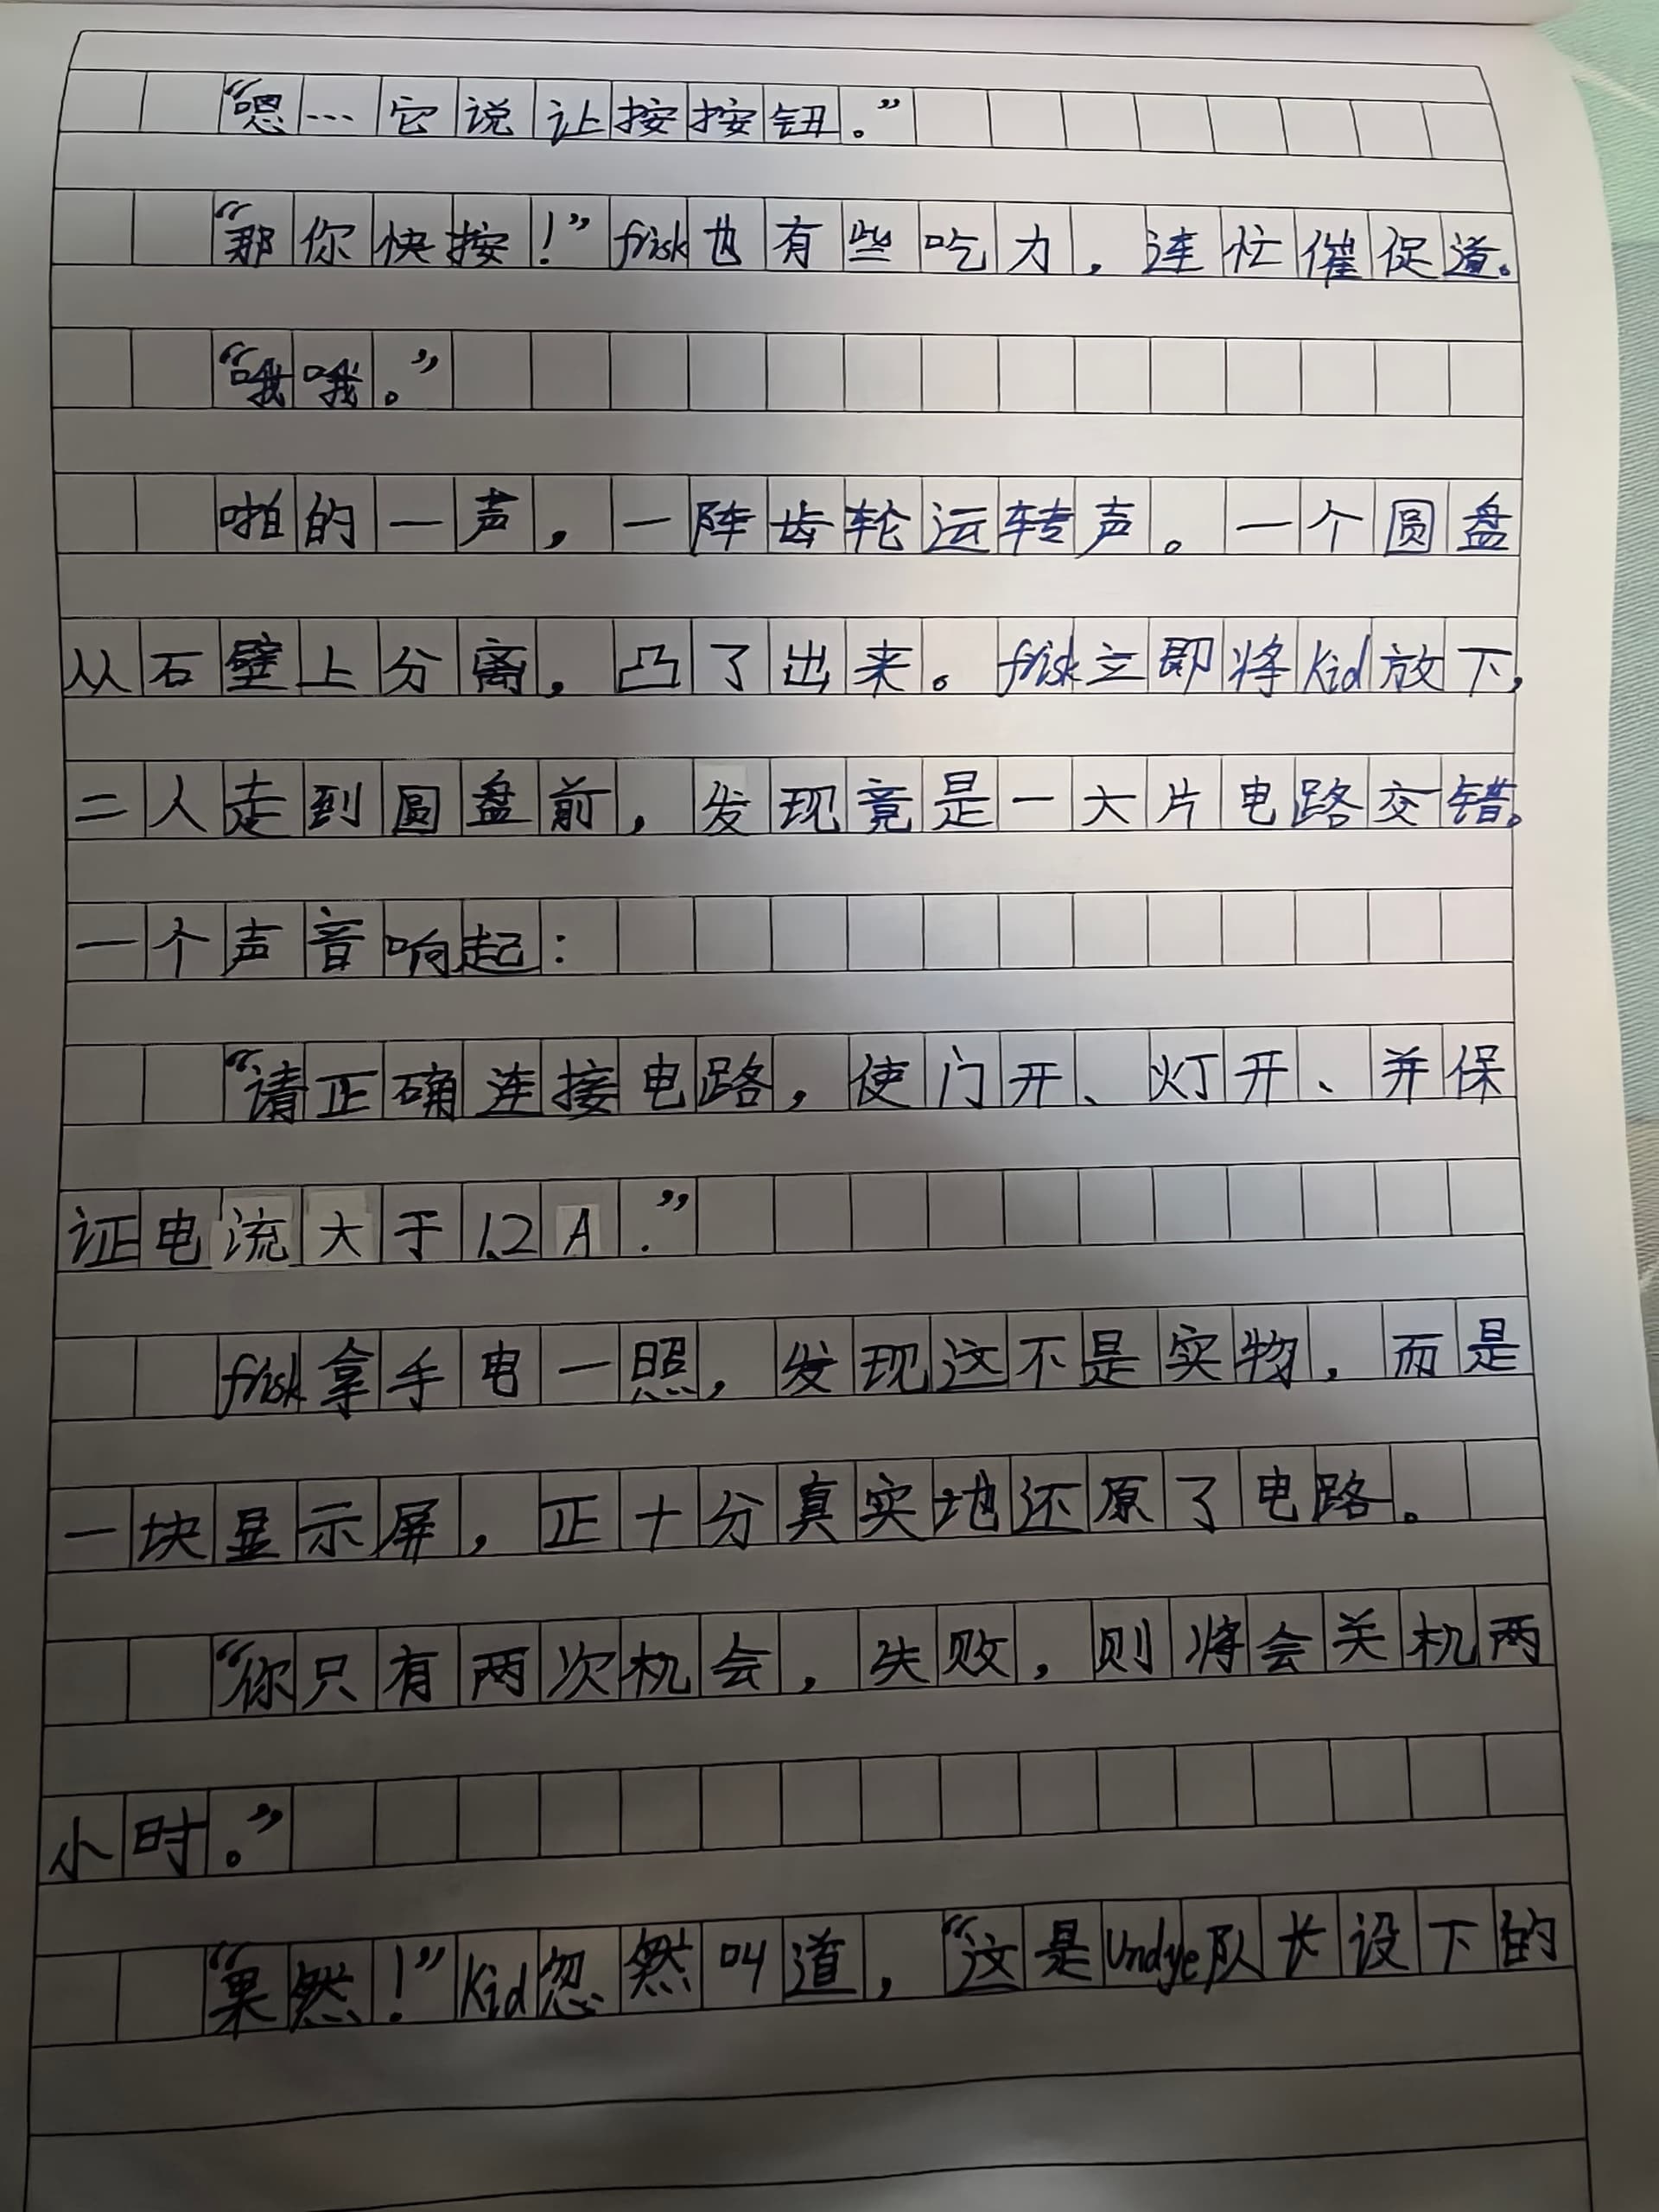 “嗯…它说让按按钮。”
“那你快按！”frisk也有些吃力，连忙催促道。
“哦哦。”
啪的一声，一阵齿轮运转声。一个圆盘
从石壁上分离，凸了出来。frisk立即将Kid放下，
二人走到圆盘前，发现竟是一大片电路交错。
一个声音响起：
“请正确连接电路，使门开、灯开、并保
证电流大于1.2A.”
frisk拿手电一照，发现这不是实物，而是
一块显示屏，正十分真实地还原了电路。
“你只有两次机会，失败，则将会关机两
小时。”
“果然！”Kid忽然叫道，“这是Undye队长设下的